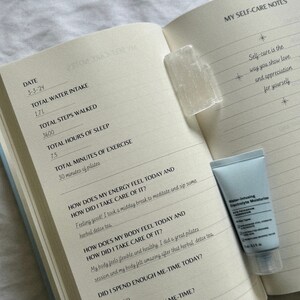 DATE
3-3-24
TOTAL WATER INTAKE
1.7 l
TOTAL STEPS WALKED
3600
TOTAL HOURS OF SLEEP
7.5
TOTAL MINUTES OF EXERCISE
30 minutes of pilates
HOW DOES MY ENERGY FEEL TODAY AND
HOW DID I TAKE CARE OF IT?
Feeling good! I took a midday break to meditate and sip some
herbal detox tea.
HOW DOES MY BODY FEEL TODAY AND
HOW DID I TAKE CARE OF IT?
My body feels flexible and healthy. I did a great pilates
session and my belly felt amazing after this herbal detox tea.
DID I SPEND ENOUGH ME-TIME TODAY?
ME-TIME?
MY SELF-CARE NOTES
Self-care is the
way you show love
and appreciation
for yourself.